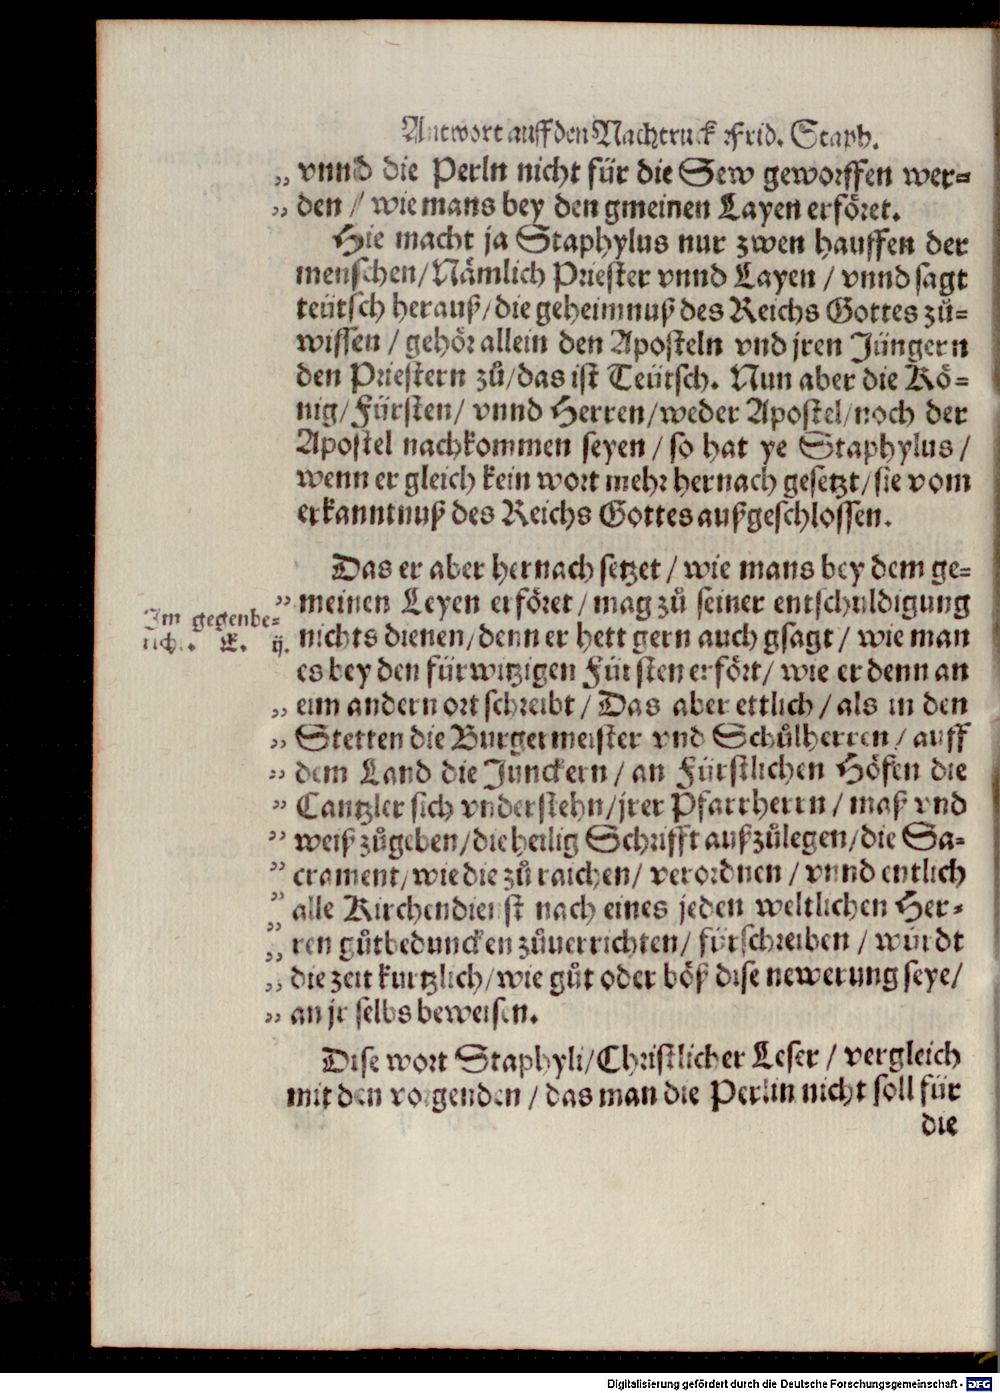 Antwort auff den Nachtruck Frid. Staph.
„ vnnd die Perln nicht für die Sew geworffen wer=
„ den / wie mans bey den gmeinen Layen erföret.
Hie macht ja Staphylus nur zwen hauffen der
menschen/ Nämlich Priester vnnd Layen / vnnd sagt
teütsch herauß/ die geheimnuß des Reichs Gottes zů=
wissen / gehör allein den Aposteln vnd jren Jüngern
den Priestern zů/ das ist Teütsch. Nun aber die Kö=
nig/ Fürsten/ vnnd Herren/ weder Apostel/ noch der
Apostel nachkommen seyen / so hat ye Staphylus /
wenn er gleich kein wort mehr hernach gesetzt/ sie vom
erkanntnuß des Reichs Gottes außgeschlossen.
Das er aber hernach setzet / wie mans bey dem ge=
„ meinen Leyen erföret / mag zů seiner entschuldigung
Im gegenbe=
rich. . E. ij.
nichts dienen/ denn er hett gern auch gsagt / wie man
es bey den fürwitzigen Fürsten erfört/ wie er denn an
„ eim andern ort schreibt / Das aber ettlich / als in den
„ Stetten die Burgermeister vnd Schůlherren / auff
„ dem Land die Junckern / an Fürstlichen Höfen die
„ Cantzler sich vnderstehn/ jrer Pfarrherrn / maß vnd
„ weiß zůgeben/ die heilig Schrifft außzůlegen/ die Sa=
„ crament/ wie die zů raichen/ verordnen / vnnd entlich
„ alle Kirchendienst nach eines jeden weltlichen Her=
„ ren gůtbeduncken zůuerrichten/ fürschreiben / würdt
„ die zeit kurtzlich/ wie gůt oder böß dise newerung seye/
„ an jr selbs beweisen.
Dise wort Staphyli/ Christlicher Leser / vergleich
mit den vorgenden / das man die Perlin nicht soll für
die
Digitalisierung gefördert durch die Deutsche Forschungsgemeinschaft - DFG